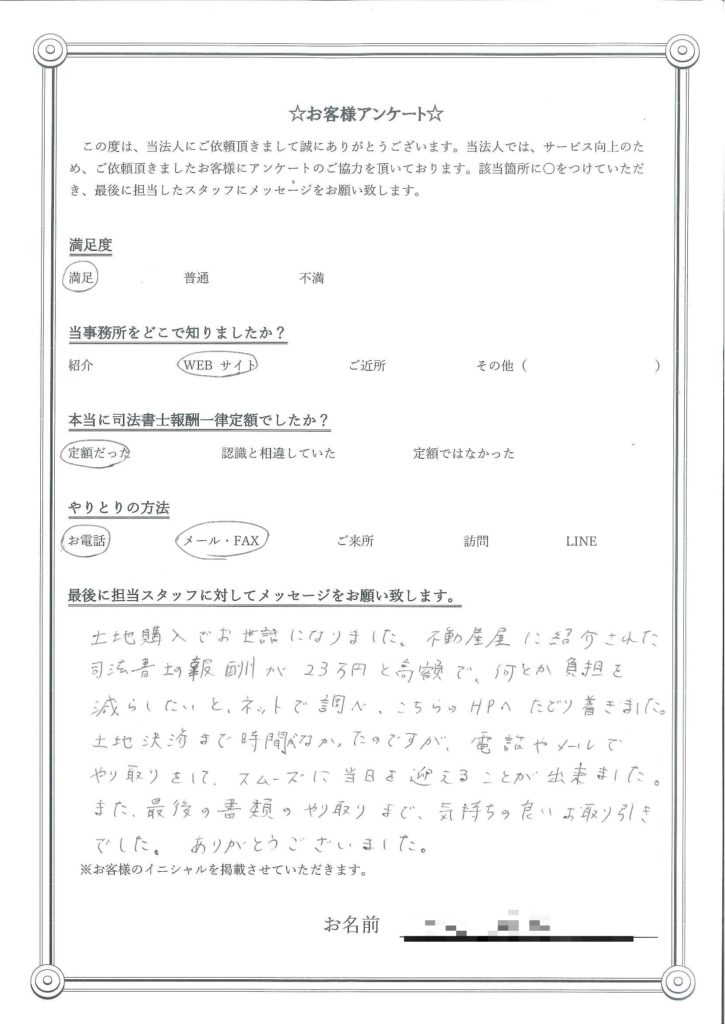 ☆お客様アンケート☆
この度は、当法人にご依頼頂きまして誠にありがとうございます。当法人では、サービス向上のた
め、ご依頼頂きましたお客様にアンケートのご協力を頂いております。該当箇所に〇をつけていただ
き、最後に担当したスタッフにメッセージをお願い致します。
満足度
満足 普通 不満
当事務所をどこで知りましたか？
紹介 WEB サイト ご近所 その他（ ）
本当に司法書士報酬一律定額でしたか？
定額だった 認識と相違していた 定額ではなかった
やりとりの方法
お電話 メール・FAX ご来所 訪問 LINE
最後に担当スタッフに対してメッセージをお願い致します。
土地購入でお世話になりました。不動産屋に紹介された
司法書士の報酬が23万円と高額で、何とか負担を
減らしたいと、ネットで調べ、こちらのHPへたどり着きました。
土地決済まで時間がなかったのですが、電話やメールで
やり取りをして、スムーズに当日を迎えることが出来ました。
また、最後の書類のやり取りまで、気持ちの良いお取り引き
でした。ありがとうございました。
※お客様のイニシャルを掲載させていただきます。
お名前